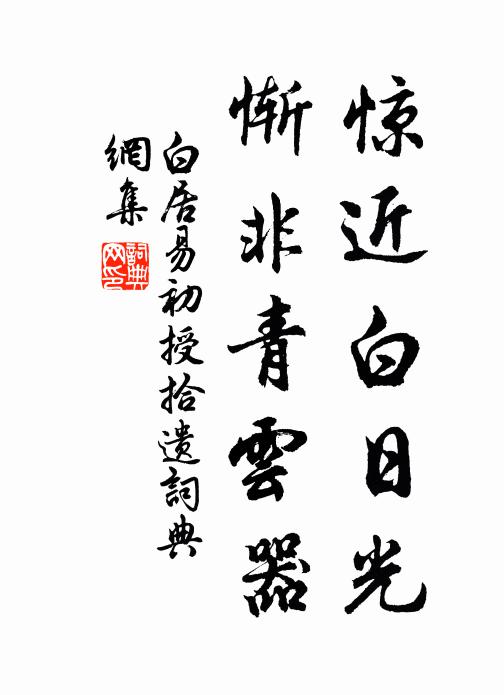 惊近白日光
惭非青雲器
白居易初授拾遗詞典
網集
詞典
网印